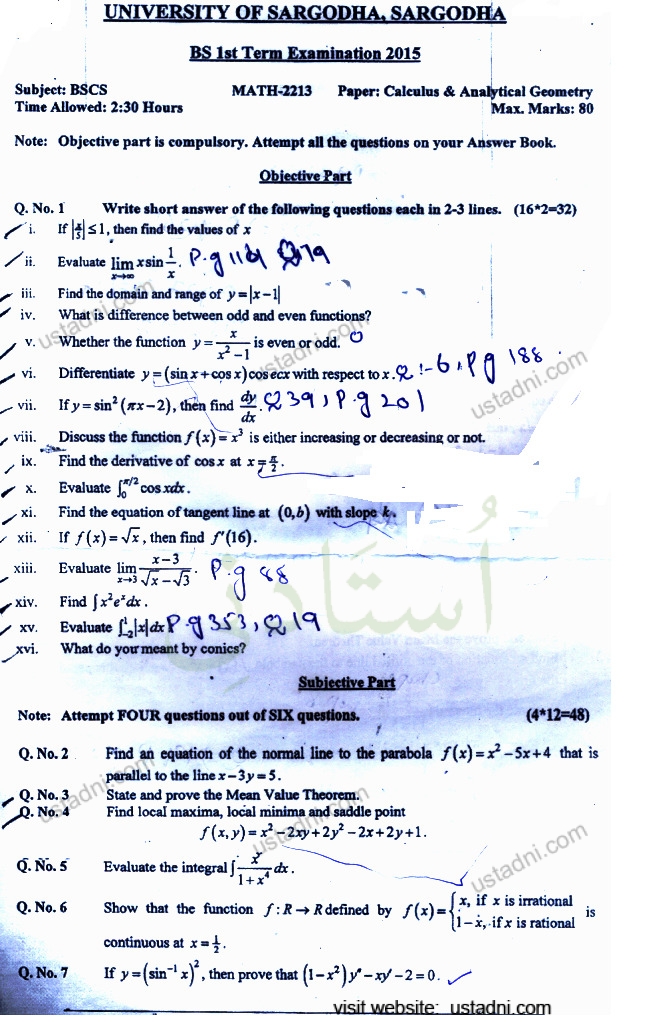 UNIVERSITY OF SARGODHA, SARGODHA
BS 1st Term Examination 2015
Subject: BSCS MATH-2213 Paper: Calculus & Analytical Geometry
Time Allowed: 2:30 Hours Max. Marks: 80
Note: Objective part is compulsory. Attempt all the questions on your Answer Book.
Objective Part
Q. No. 1 Write short answer of the following questions each in 2-3 lines. (16*2=32)
i. If |x/5| ≤ 1, then find the values of x
ii. Evaluate lim x→∞ x sin 1/x. P.g Q 79
iii. Find the domain and range of y = |x−1|
iv. What is difference between odd and even functions?
v. Whether the function y = x/(x²−1) is even or odd. O
vi. Differentiate y = (sin x + cos x) cos ecx with respect to x. Q:-6, Pg 188
vii. If y = sin²(πx−2), then find dy/dx. Q 39, P.g 201
viii. Discuss the function f(x) = x³ is either increasing or decreasing or not.
ix. Find the derivative of cos x at x = π/2.
x. Evaluate ∫₀^(π/2) cos x dx.
xi. Find the equation of tangent line at (0,b) with slope k.
xii. If f(x) = √x, then find f'(16).
xiii. Evaluate lim x→3 (x−3)/(√x−√3). P.g 88
xiv. Find ∫x²eˣdx.
xv. Evaluate ∫₋₂¹|x|dx P.g 353, Q 19
xvi. What do you meant by conics?
استادنی
Subjective Part
Note: Attempt FOUR questions out of SIX questions. (4*12=48)
Q. No. 2 Find an equation of the normal line to the parabola f(x) = x²−5x+4 that is
parallel to the line x−3y=5.
Q. No. 3 State and prove the Mean Value Theorem.
Q. No. 4 Find local maxima, local minima and saddle point
f(x,y) = x²−2xy+2y²−2x+2y+1.
Q. No. 5 Evaluate the integral ∫ x/(1+x⁴) dx.
Q. No. 6 Show that the function f:R→R defined by f(x) = {x, if x is irrational
1−x, if x is rational is
continuous at x = ½.
Q. No. 7 If y = (sin⁻¹x)², then prove that (1−x²)y″−xy′−2=0.
visit website: ustadni.com
ustadni.com
ustadni.com
ustadni.com
ustadni.com
ustadni.com
ustadni.com
ustadni.com